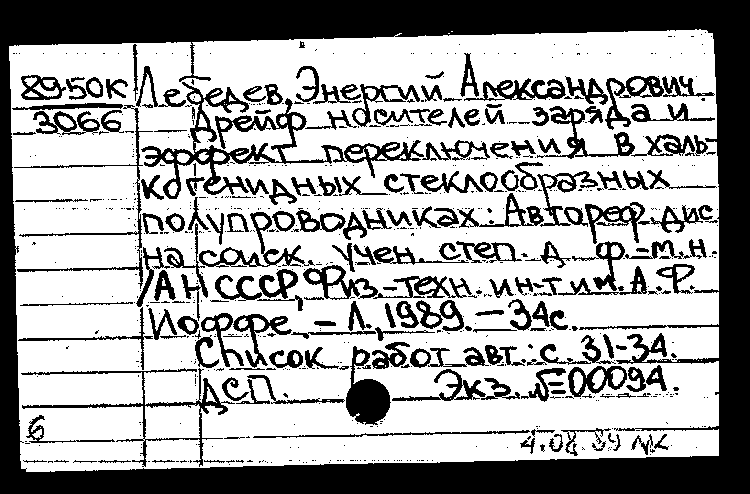 89-50К Лебедев, Энергий Александрович.
3066 Дрейф носителей заряда и
эффект переключения в халь-
когенидных стеклообразных
полупроводниках: Автореф. дис
на соиск. учен. степ. д. ф.-м.н.
/АН СССР, Физ.-техн. ин-т им. А.Ф.
Иоффе. - Л., 1989. - 34с.
Список работ авт.: с. 31-34.
ДСП. Экз. №00094.
6
4.08.89 МК